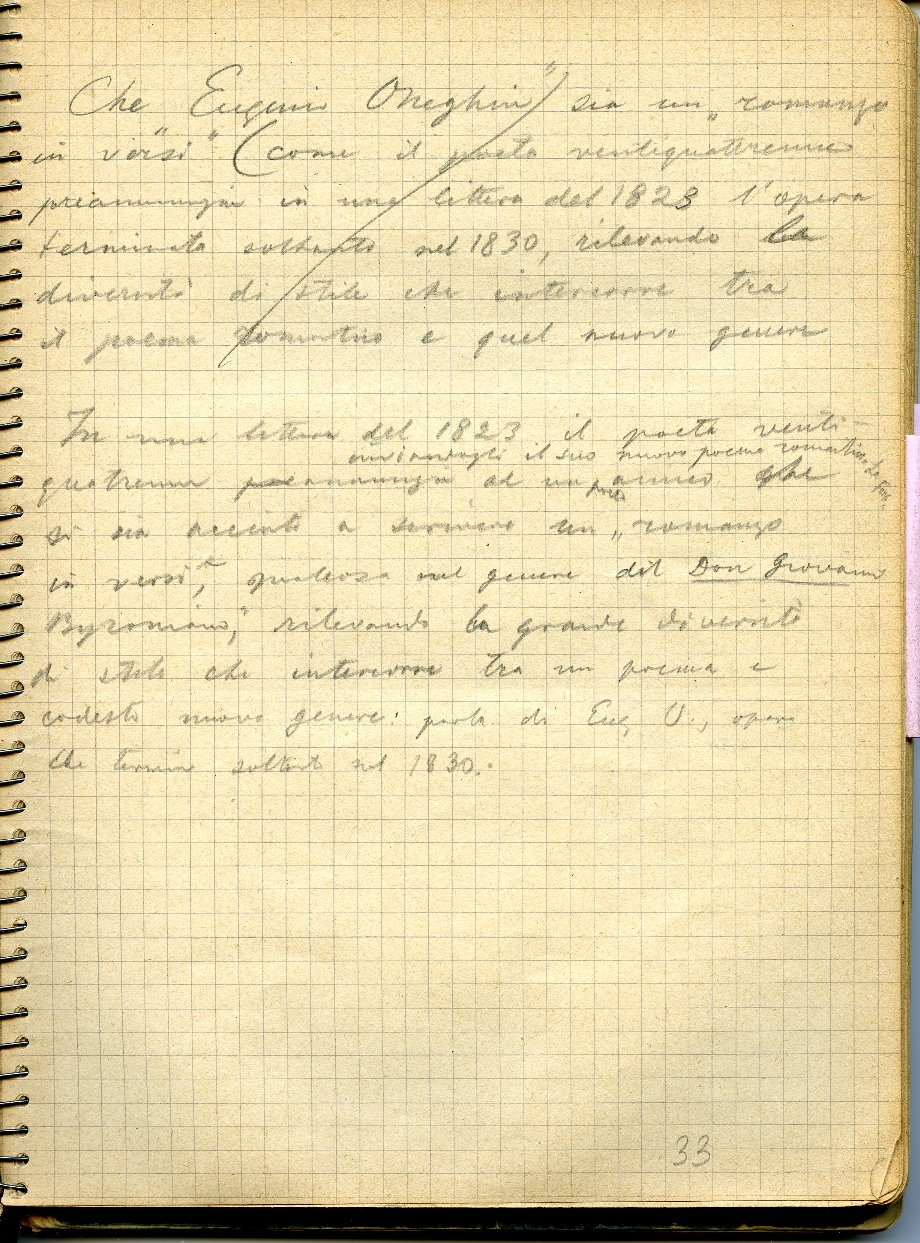 Che Eugenio Oneghin" sia un "romanzo
in versi" (come il poeta ventiquattrenne
preannunzia in una lettera del 1823 l'opera
terminata soltanto nel 1830, rilevando la
diversità di stile che intercorre tra
il poema romantico e quel nuovo genere
In una lettera del 1823 il poeta venti-
inviandogli il suo nuovo poema romantico La Font.
quatrenne preannunzia ad un amico che
si sia accinto a scrivere un „romanzo
in versi", qualcosa nel genere del Don Giovanni
Byroniano", rilevando la grande diversità
di stile che intercorre tra un poema e
codesto nuovo genere: parla di Eug O., opera
che termina soltanto nel 1830.
33